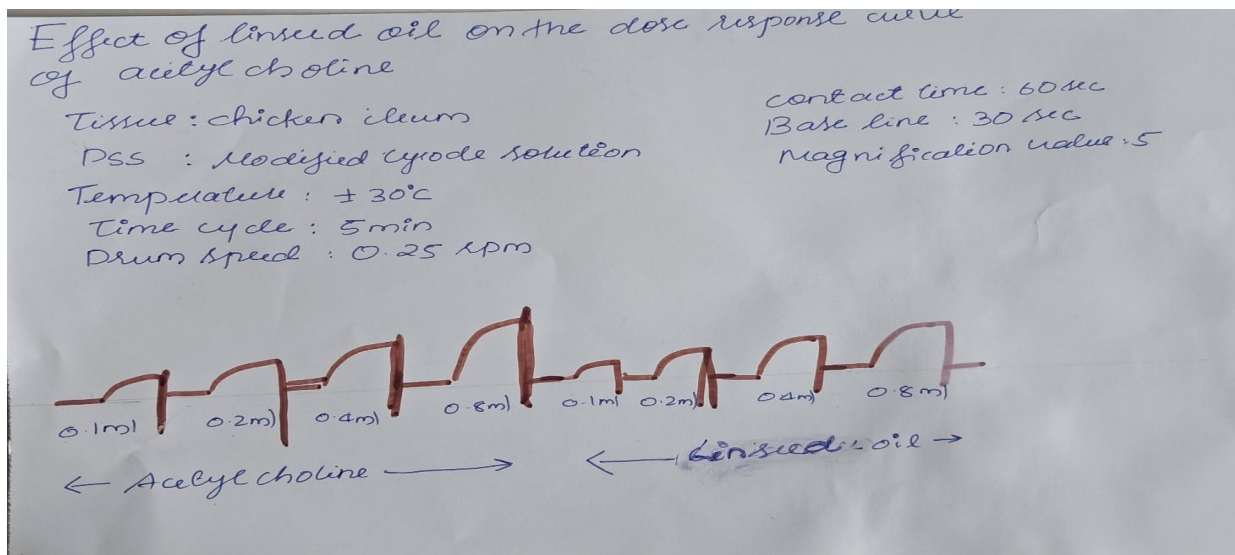 Effect of linseed oil on the dose response curve
of acetyl choline
Tissue : chicken ileum
PSS : Modified cyrode solution
Temperature : ± 30°C
Time cycle : 5 min
Drum speed : 0.25 rpm
contact time : 60 sec
Base line : 30 sec
Magnification value : 5
0.1ml 0.2ml 0.4ml 0.8ml 0.1ml 0.2ml 0.4ml 0.8ml
← Acetyl choline → ← Linseed oil →